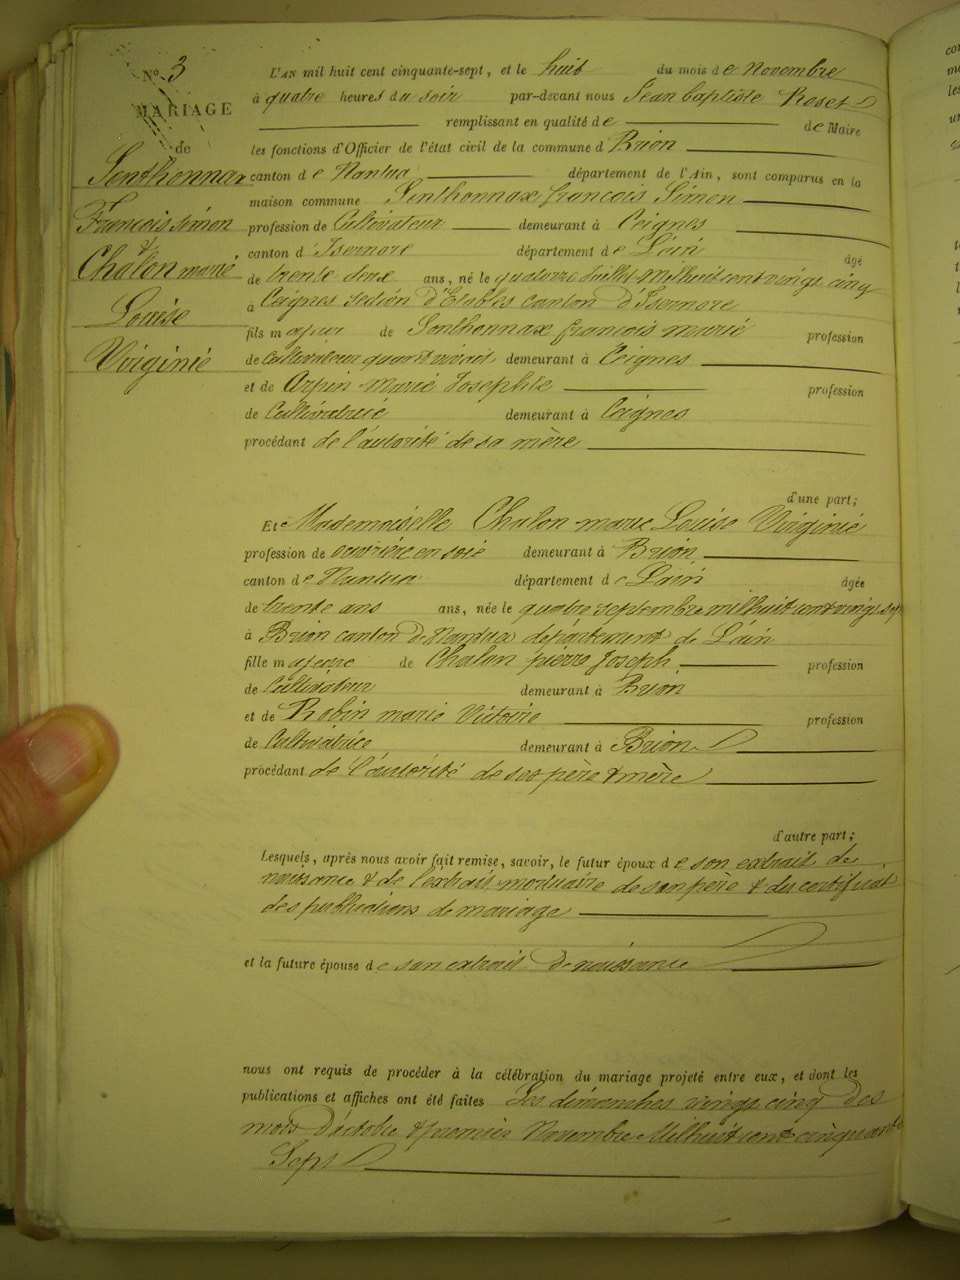 N° 3
MARIAGE
de
Senthonnax
François Simon
&
Chalon marie
Louise
Virginie
L'AN mil huit cent cinquante-sept, et le huit du mois de Novembre
à quatre heures du soir par-devant nous Jean baptiste Roset
remplissant en qualité de de Maire
les fonctions d'Officier de l'état civil de la commune d Brion
canton de Nantua département de l'Ain, sont comparus en la
maison commune Senthonnax françois Simon
profession de Cultivateur demeurant à Ceignes
canton d'Isernore département de L'ain âgé
de trente deux ans, né le quatorze Juillet mil huit cent vingt cinq
à Ceignes section d'Etables canton d'Isernore
fils majeur de Senthonnax françois marie profession
de Cultivateur quand vivait demeurant à Ceignes
et de Arpin marie Josephte profession
de Cultivatrice demeurant à Ceignes
procédant de l'autorité de sa mère
d'une part;
Et Mademoiselle Chalon marie Louise Virginie
profession de ouvrière en soie demeurant à Brion
canton de Nantua département de L'ain âgée
de trente ans ans, née le quatre septembre mil huit cent vingt sept
à Brion canton de Nantua département de L'ain
fille majeure de Chalon pierre Joseph profession
de Cultivateur demeurant à Brion
et de Robin marie Victoire profession
de Cultivatrice demeurant à Brion
procédant de l'autorité de ses père & mère
d'autre part;
Lesquels, après nous avoir fait remise, savoir, le futur époux de son extrait de
naissance & de l'extrait mortuaire de son père & du certificat
des publications de mariage
et la future épouse de son extrait de naissance
nous ont requis de procéder à la célébration du mariage projeté entre eux, et dont les
publications et affiches ont été faites Les dimanches vingt cinq des
mois D'octobre & premier Novembre Mil huit cent cinquante
Sept